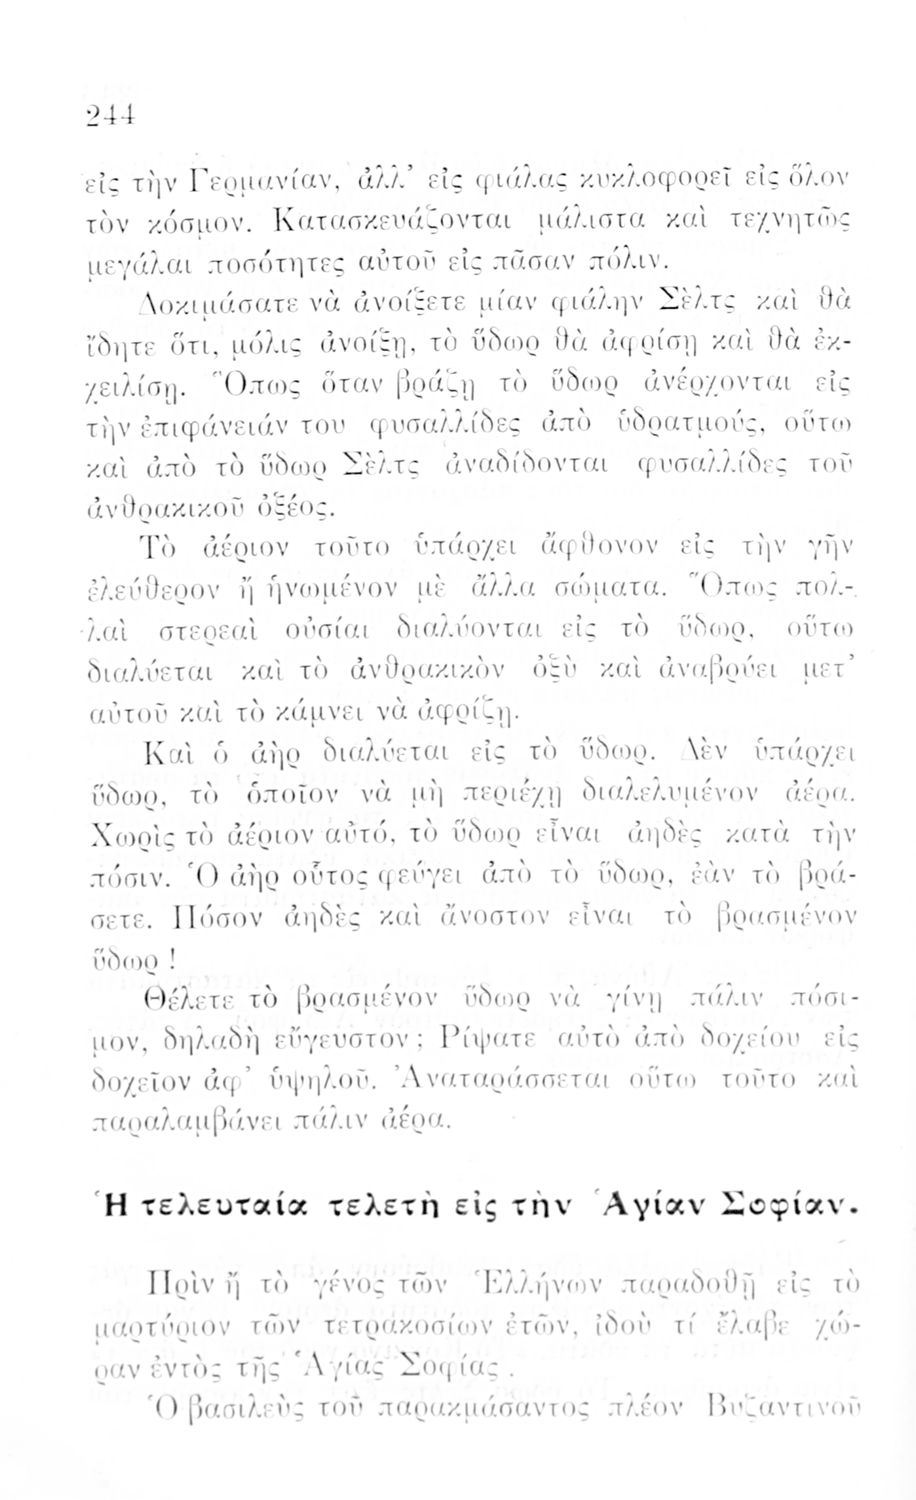 244
εἰς τὴν Γερμανίαν, ἀλλ’ εἰς φιάλας κυκλοφορεῖ εἰς ὅλον
τὸν κόσμον. Κατασκευάζονται μάλιστα καὶ τεχνητῶς
μεγάλαι ποσότητες αὐτοῦ εἰς πᾶσαν πόλιν.
Δοκιμάσατε νὰ ἀνοίξετε μίαν φιάλην Σὲλτς καὶ θὰ
ἴδητε ὅτι, μόλις ἀνοίξῃ, τὸ ὕδωρ θὰ ἀφρίσῃ καὶ θὰ ἐκ-
χειλίσῃ. Ὅπως ὅταν βράζῃ τὸ ὕδωρ ἀνέρχονται εἰς
τὴν ἐπιφάνειάν του φυσαλλίδες ἀπὸ ὑδρατμούς, οὕτω
καὶ ἀπὸ τὸ ὕδωρ Σὲλτς ἀναδίδονται φυσαλλίδες τοῦ
ἀνθρακικοῦ ὀξέος.
Τὸ ἀέριον τοῦτο ὑπάρχει ἄφθονον εἰς τὴν γῆν
ἐλεύθερον ἢ ἡνωμένον μὲ ἄλλα σώματα. Ὅπως πολ-
λαὶ στερεαὶ οὐσίαι διαλύονται εἰς τὸ ὕδωρ, οὕτω
διαλύεται καὶ τὸ ἀνθρακικὸν ὀξὺ καὶ ἀναβρύει μετ’
αὐτοῦ καὶ τὸ κάμνει νὰ ἀφρίζῃ.
Καὶ ὁ ἀὴρ διαλύεται εἰς τὸ ὕδωρ. Δὲν ὑπάρχει
ὕδωρ, τὸ ὁποῖον νὰ μὴ περιέχῃ διαλελυμένον ἀέρα.
Χωρὶς τὸ ἀέριον αὐτό, τὸ ὕδωρ εἶναι ἀηδὲς κατὰ τὴν
πόσιν. Ὁ ἀὴρ οὗτος φεύγει ἀπὸ τὸ ὕδωρ, ἐὰν τὸ βρά-
σετε. Πόσον ἀηδὲς καὶ ἄνοστον εἶναι τὸ βρασμένον
ὕδωρ !
Θέλετε τὸ βρασμένον ὕδωρ νὰ γίνῃ πάλιν πόσι-
μον, δηλαδὴ εὔγευστον ; Ρίψατε αὐτὸ ἀπὸ δοχείου εἰς
δοχεῖον ἀφ’ ὑψηλοῦ. Ἀναταράσσεται οὕτω τοῦτο καὶ
παραλαμβάνει πάλιν ἀέρα.
Ἡ τελευταία τελετὴ εἰς τὴν Ἁγίαν Σοφίαν.
Πρὶν ἢ τὸ γένος τῶν Ἑλλήνων παραδοθῇ εἰς τὸ
μαρτύριον τῶν τετρακοσίων ἐτῶν, ἰδοὺ τί ἔλαβε χώ-
ραν ἐντὸς τῆς Ἁγίας Σοφίας .
Ὁ βασιλεὺς τοῦ παρακμάσαντος πλέον Βυζαντινοῦ